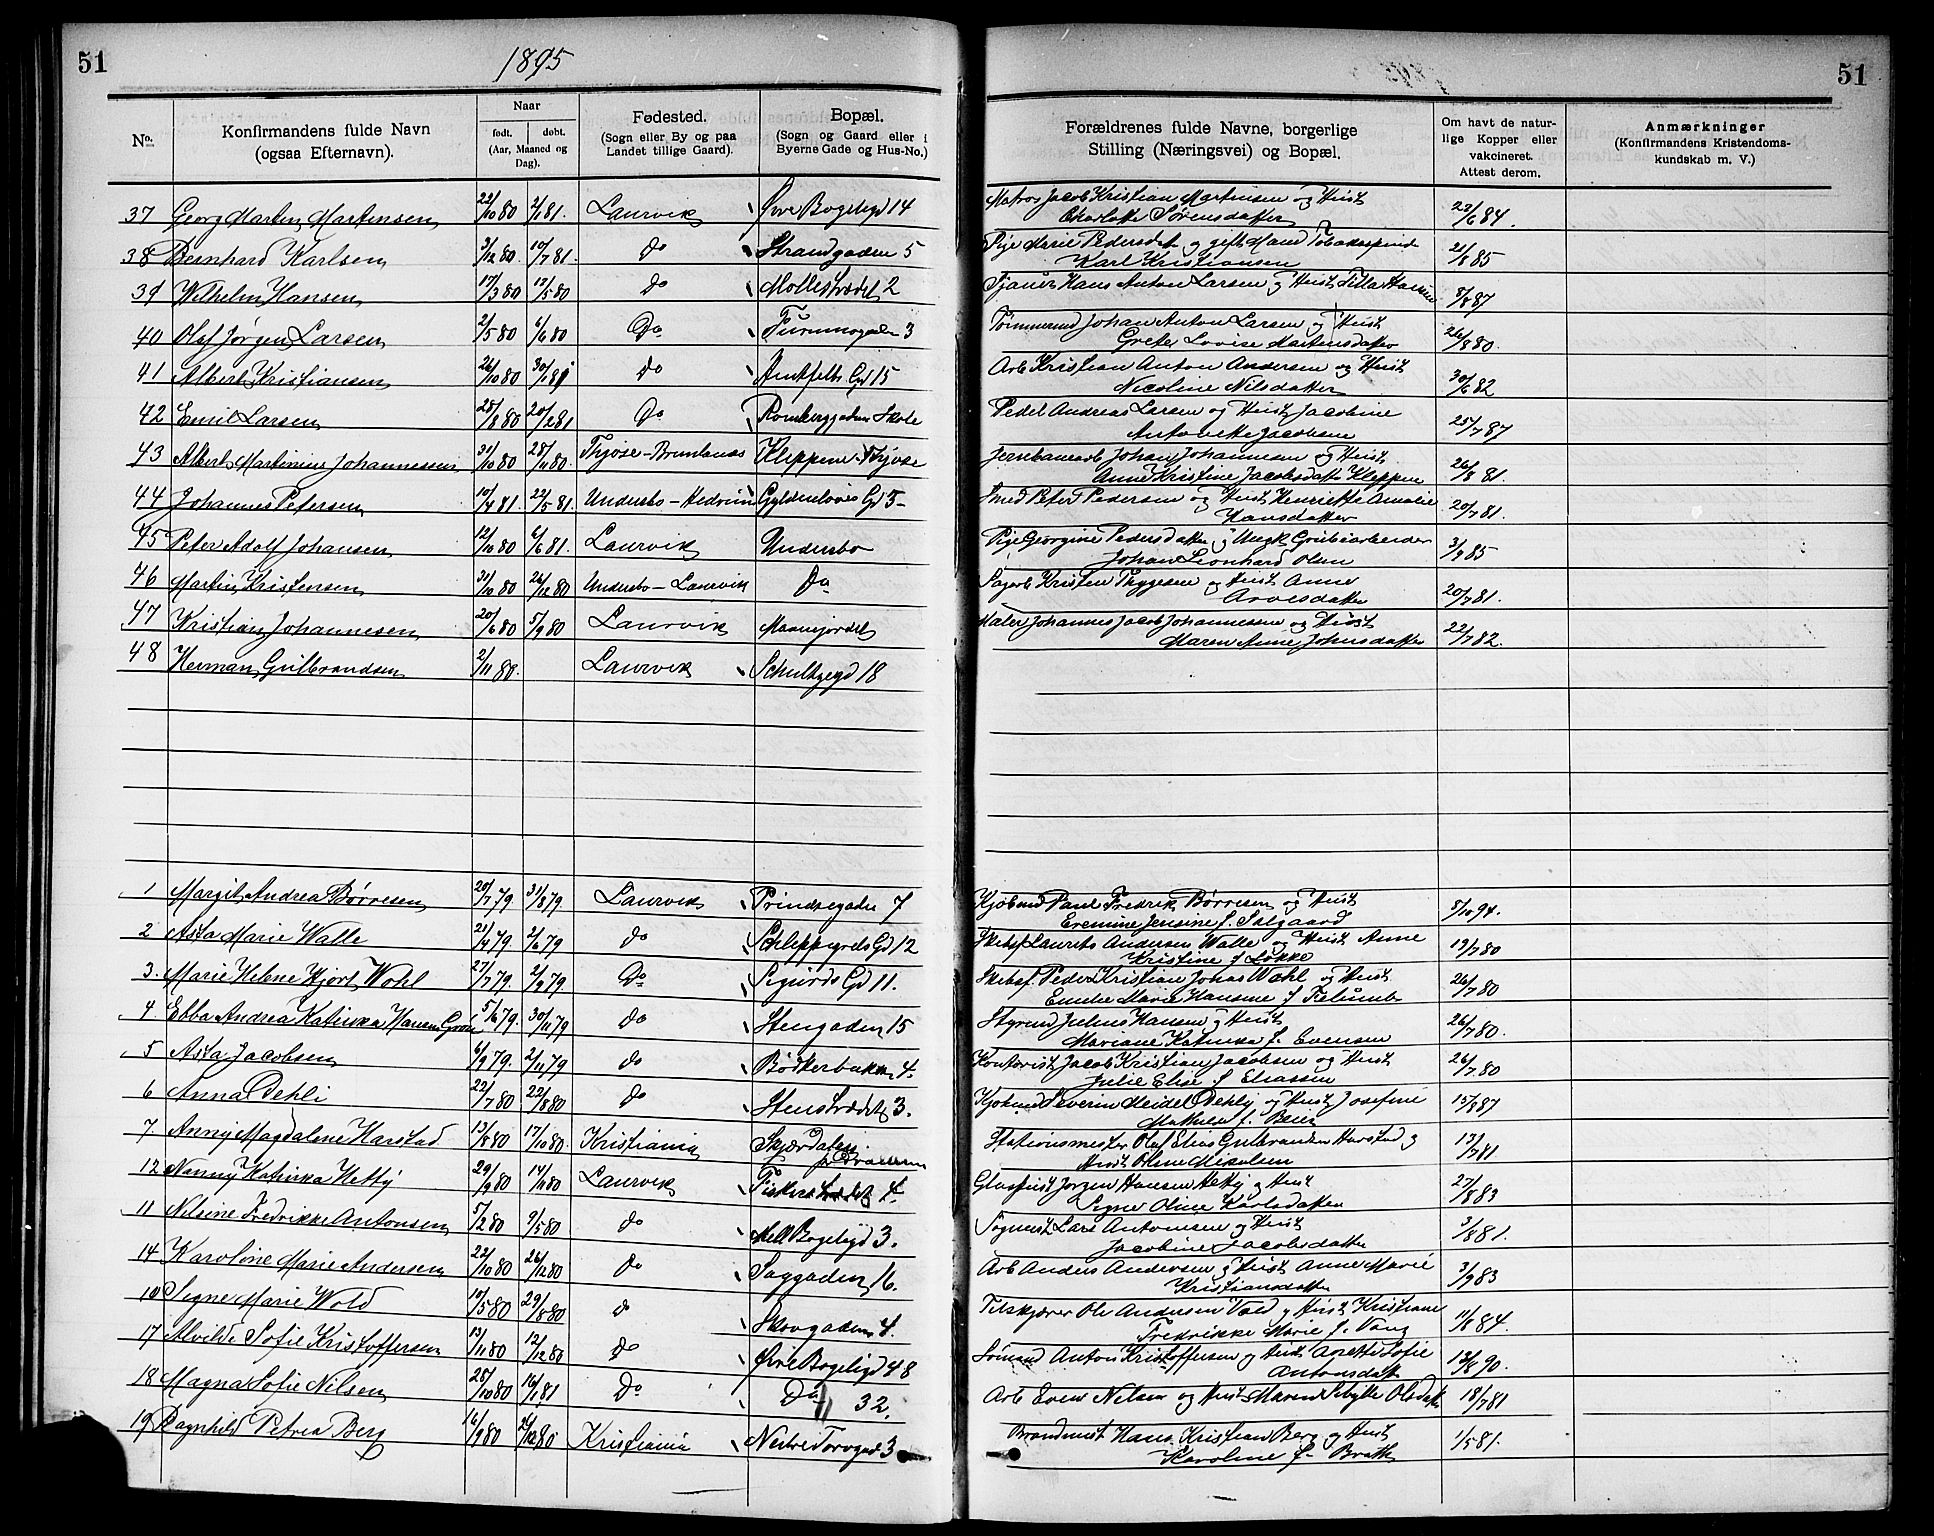 51
1895
51
No.
Konfirmandens fulde Navn
(ogsaa Efternavn).
Naar
født.
døbt.
(Aar, Maaned og
Dag).
Fødested.
(Sogn eller By og paa
Landet tillige Gaard).
Bopæl.
(Sogn og Gaard eller i
Byerne Gade og Hus-No.)
Forældrenes fulde Navne, borgerlige
Stilling (Næringsvei) og Bopæl.
Om havt de natur-
lige Kopper eller
vakcineret.
Attest derom.
Anmærkninger
(Konfirmandens Kristendoms-
kundskab m. V.)
37 Georg Martin Martinsen 22/10 80 2/1 81. Laurvik Øvre Bøgeligd 14 Matros Jacob Kristian Martinsen og Hust
Charlotte Sørensdatter 23/6 84.
38 Bernhard Karlsen 3/12 80. 10/7 81. do Strandgaden 5 Pige Marie Pedersdat og gift Mand Tobakspind
Karl Kristiansen 21/8 85
39 Wilhelm Hansen 17/3 80 17/5 80 do Møllestrædet 2 Tjauer Hans Anton Larsen og Hust Hansen 8/8 87
40 Olaf Jørgen Larsen 2/5 80 6/6 80 Do 3 Tømmermd Johan Anton Larsen og Hust
Grete Lovise Martensdatter 26/8 80.
41 Albert Kristiansen 26/10 80 30/1 81 do Ankfelts Gd 15 Arb Kristian Anton Andersen og Hust
Nicoline Nilsdatter 30/6 82
42 Emil Larsen 28/8 80 20/2 81 Do Romberggaden Skole Pedel Andreas Larsen og Hust Jacobine
Antonette Jacobsen 25/7 87
43 Albert Martinius Johannessen 31/10 80 28/11 80. Thjøse-Brunlanes Kleppene Thjøse Jernbanearb Johan Johannesen og Hust
Anne Kristine Jacobsdatter Kleppene 26/8 81.
44 Johannes Petersen 10/4 81. 22/5 81. Undersbo-Hedrum Gyldenløves Gd 5 Smed Peter Pedersen og Hust Henriette Amalie
Hansdatter 20/7 81.
45 Peter Adolf Johansen 12/10 80 6/6 81. Laurvik Undersbo Pige Georgine Pedersdatter og Ungk Grubearbeider
Johan Leonhard Olsen 3/9 85
46 Martin Kristensen 31/10 80 26/12 80 Undersbo-Laurvik Do Sagarb Kristen Thygesen og Hust Anne
Arvesdatter 20/7 81.
47 Kristian Johannesen 20/6 80 5/9 80 Laurvik Maanejordet Maler Johannes Jacob Johannessen og Hust
Maren Anne Johnsdatter 22/7 82.
48 Herman Gulbrandsen 2/11 80. Laurvik Schultzegd 18
1 Margit Andrea Børresen 20/7 79 31/8 79. Laurvik Prindsegaden 7 Kjøbmd Paul Fredrik Børresen og Hust
Eremine Jensine f. Salgaard 5/10 94.
2 Asta Marie Walle 21/4 79 2/6 79 do Schleppegrels Gd 12 Skibsf Laurits Andersen Walle og Hust Anne
Kristine f Løkke 13/7 80
3. Marie Helene Hjort Wohl 27/7 79. 2/9 79. Do Sigurds Gd 11. Skibsf. Peder Kristian Jonas Wohl og Hust
Emilie Marie Hansine f 26/7 80
4. Ebba Andrea Katinka Hansen 5/6 79. 30/11 79 do Stengaden 15 Styrmd Julius Hansen og Hust
Mariane Katinka f. Evensen 26/7 80.
5 Asta Jacobsen 6/9 79. 2/11 79 do Bødkerbakken 4. Kontorist Jacob Kristian Jacobsen og Hust
Julie Elise f Eliassen 26/7 80
6 Anna Dehli 22/7 80 22/8 80 do Stenstrædet 3. Kjøbmd Severin Meidel Dehly og Hust Josefine
Mathilde f. Beier 15/8 87
7 Anny Magdalene Harstad 13/8 80 17/10 80. Kristiania Skjærdalen
Stationsmester Olaf Elias Gulbrandsen Harstad og
Hust Oline Mikelsen 13/7 81
12 Nanny Katinka Hetty 29/9 80 14/11 80 Laurvik Fiskerstrædet 4. Glaspust Jørgen Hansen Hetty og Hust
Signe Oline Karlsdatter 27/8 83
11 Nilsine Fredrikke Antonsen 5/2 80 9/5 80 do Mell Bøgeligd 3. Lars Antonsen og Hust
Jacobine Jacobsdatter 3/8 81.
14 Karoline Marie Andersen 22/10 80 26/12 80 do Saggaden 16. Arb Anders Andersen og Hust Anne Marie
Kristiansdatter 3/9 83
10 Signe Marie Wold 10/5 80 29/8 80 do Skovgaden 4. Tilskjærer Ole Andersen Vold og Hust Kristiane
Fredrikke Marie f. Vang 11/8 84.
17 Alvilde Sofie Kristoffersen 13/11 80 12/12 80 do Øvre Bøgeligd 48 Sømand Anton Kristoffersen og Hust Anette Sofie
Antonsdat 13/8 90.
18 Magna Sofie Nilsen 28/10 80 16/1 81 Do Do 32. Arb Even Nilsen og Hust Maren Sibylle Olsdat 18/7 81
19 Ragnhild Petrea Berg 16/9 80 26/12 80 Kristiania Nedre Torvgad 3 Brandmst Hans Kristian Berg og Hust
Karoline f. Brath 1/5 81.